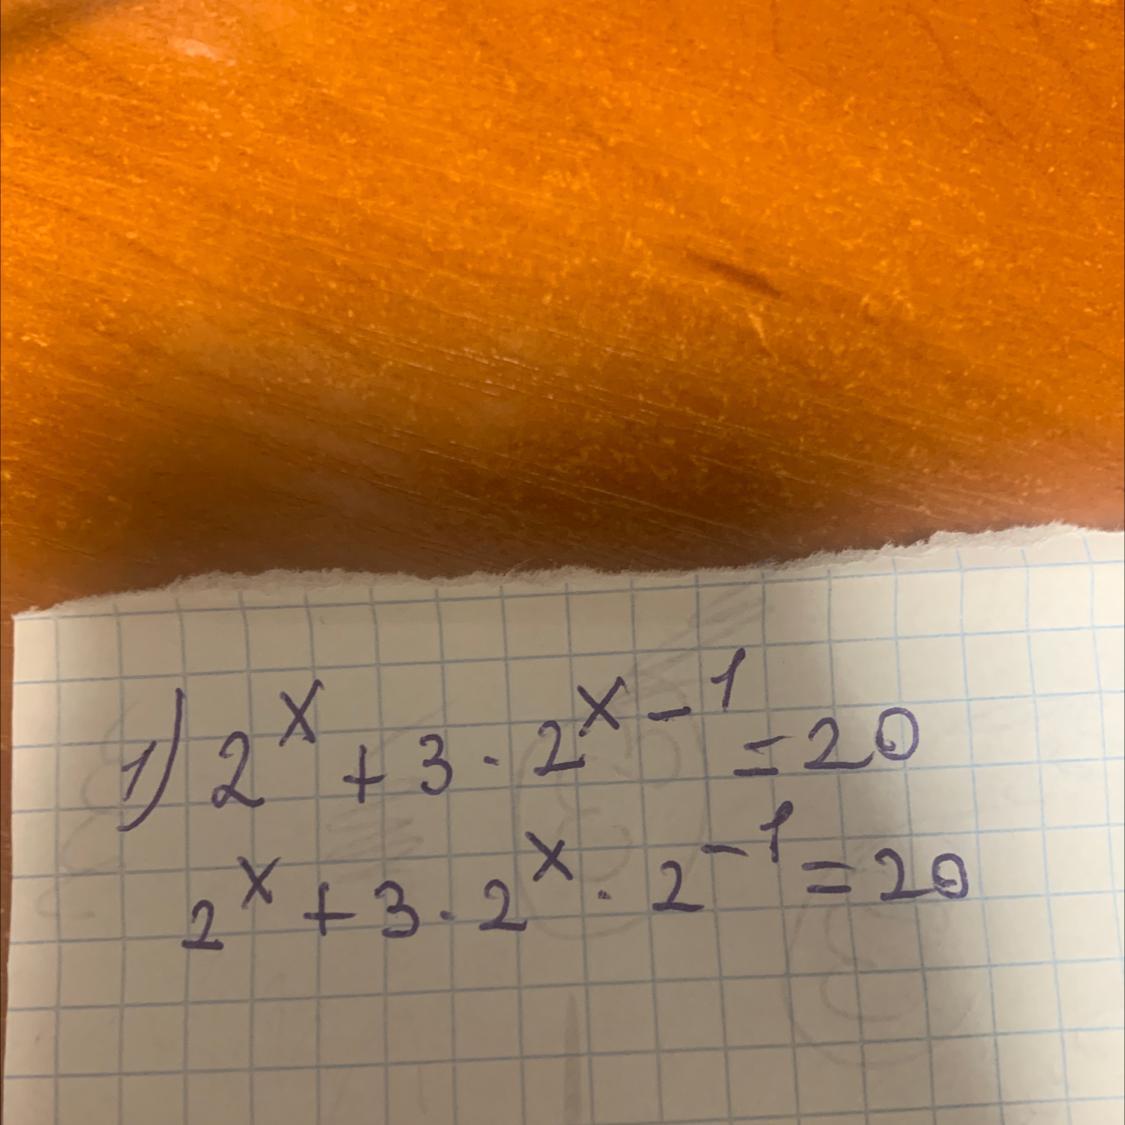 1) 2^x + 3 · 2^x-1 = 20
2^x + 3 · 2^x · 2^-1 = 20